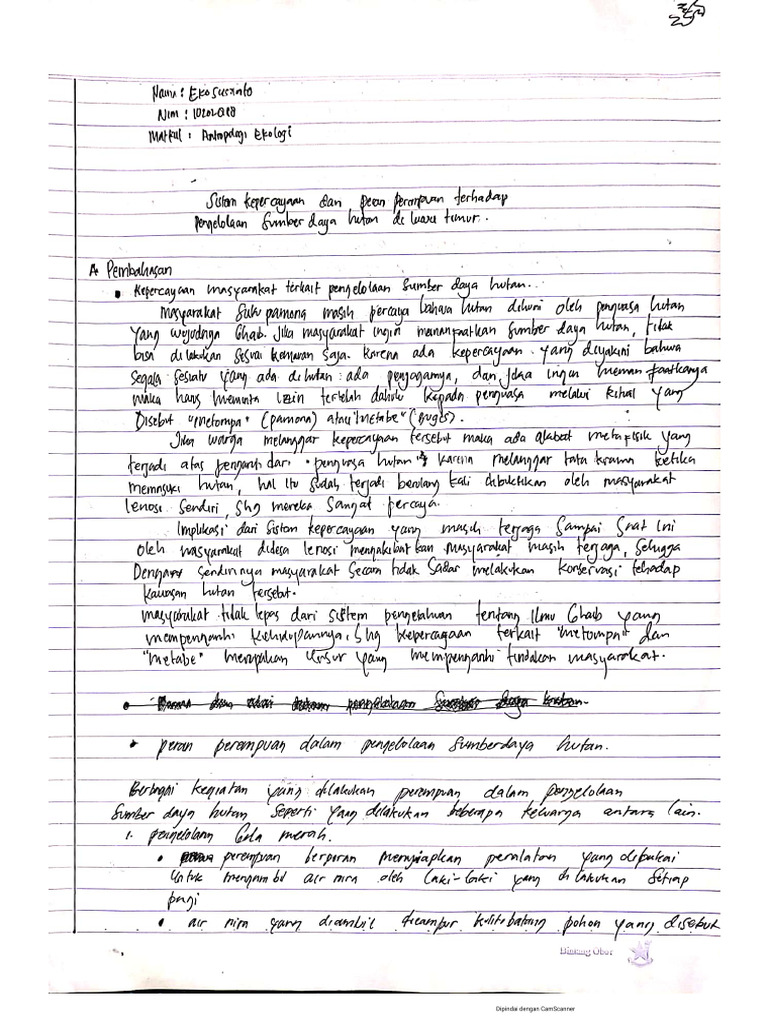 Nama : Eko Susanto
Nim :
Matkul : Antropologi Ekologi
Sistem kepercayaan dan peran perempuan terhadap
pengelolaan Sumber daya hutan di luwu timur.
A. Pembahasan
• Kepercayaan masyarakat terkait pengelolaan sumber daya hutan.
Masyarakat suku pamona masih percaya bahwa hutan dihuni oleh penguasa hutan
yang wujudnya Ghaib. Jika masyarakat ingin memanfaatkan sumber daya hutan, tidak
bisa dilakukan sesuai kemauan saja. karena ada kepercayaan yang diyakini bahwa
segala sesuatu yang ada dihutan ada penjaganya, dan jika ingin memanfaatkanya
maka harus meminta izin terlebih dahulu kepada penguasa melalui ritual yang
Disebut "metompa" (pamona) atau "metabe" (bugis).
Jika warga melanggar kepercayaan tersebut maka ada akibat metafisik yang
terjadi atas dari penguasa hutan karena melanggar tata krama ketika
memasuki hutan, hal itu sudah terjadi berulang kali dibuktikan oleh masyarakat
lenosi sendiri, shg mereka sangat percaya.
Implikasi dari sistem kepercayaan yang masih terjaga sampai saat ini
oleh masyarakat didesa lenosi mengakibatkan masyarakat masih terjaga, sehingga
Dengan sendirinya masyarakat secara tidak sadar melakukan konservasi tehadap
kawasan hutan tersebut.
masyarakat tidak lepas dari sistem pengetahuan tentang ilmu Ghaib yang
mempengaruhi kehidupannya, shg kepercayaan terkait "metompa" dan
"metabe" merupakan unsur yang mempengaruhi tindakan masyarakat.
• peran perempuan dalam pengelolaan sumberdaya hutan.
Berbagai kegiatan yang dilakukan perempuan dalam pengelolaan
sumber daya hutan seperti yang dilakukan beberapa keluarga antara lain.
1. pengelolaan Gula merah.
• perempuan berperan menyiapkan peralatan yang dipakai
untuk mengambil air nira oleh laki-laki yang dilakukan setiap
pagi
• air nira yang diambil dicampur kulit batang pohon yang disebut
Bintang Obor
Dipindai dengan CamScanner